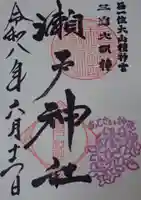 正一位大山積神宮
三嶋大明神
瀬戸神社
令和八年六月十一日